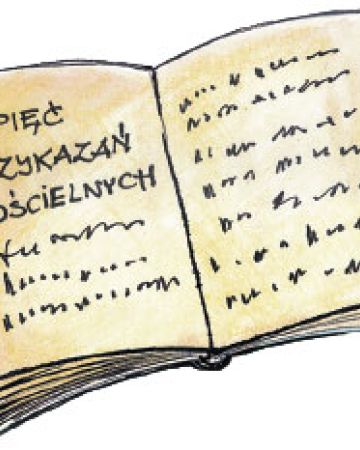 PIĘĆ
ZYKAZAŃ
OŚCIELNYCH